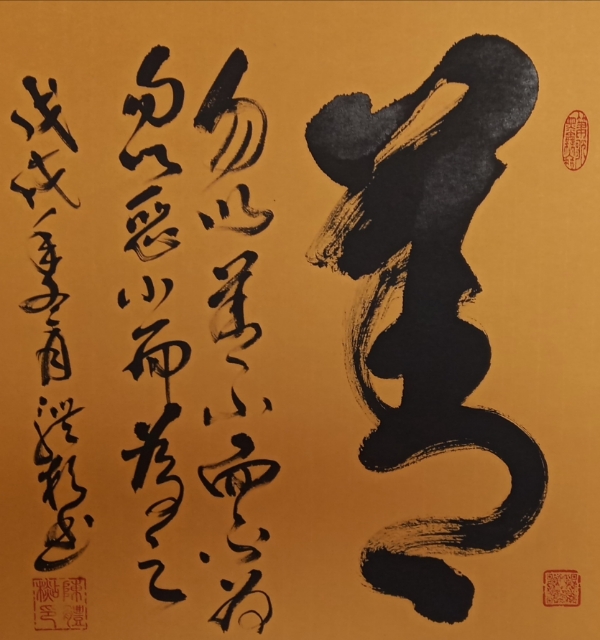 善
勿以善小而不为
勿以惡小而為之
戊戌年五月书